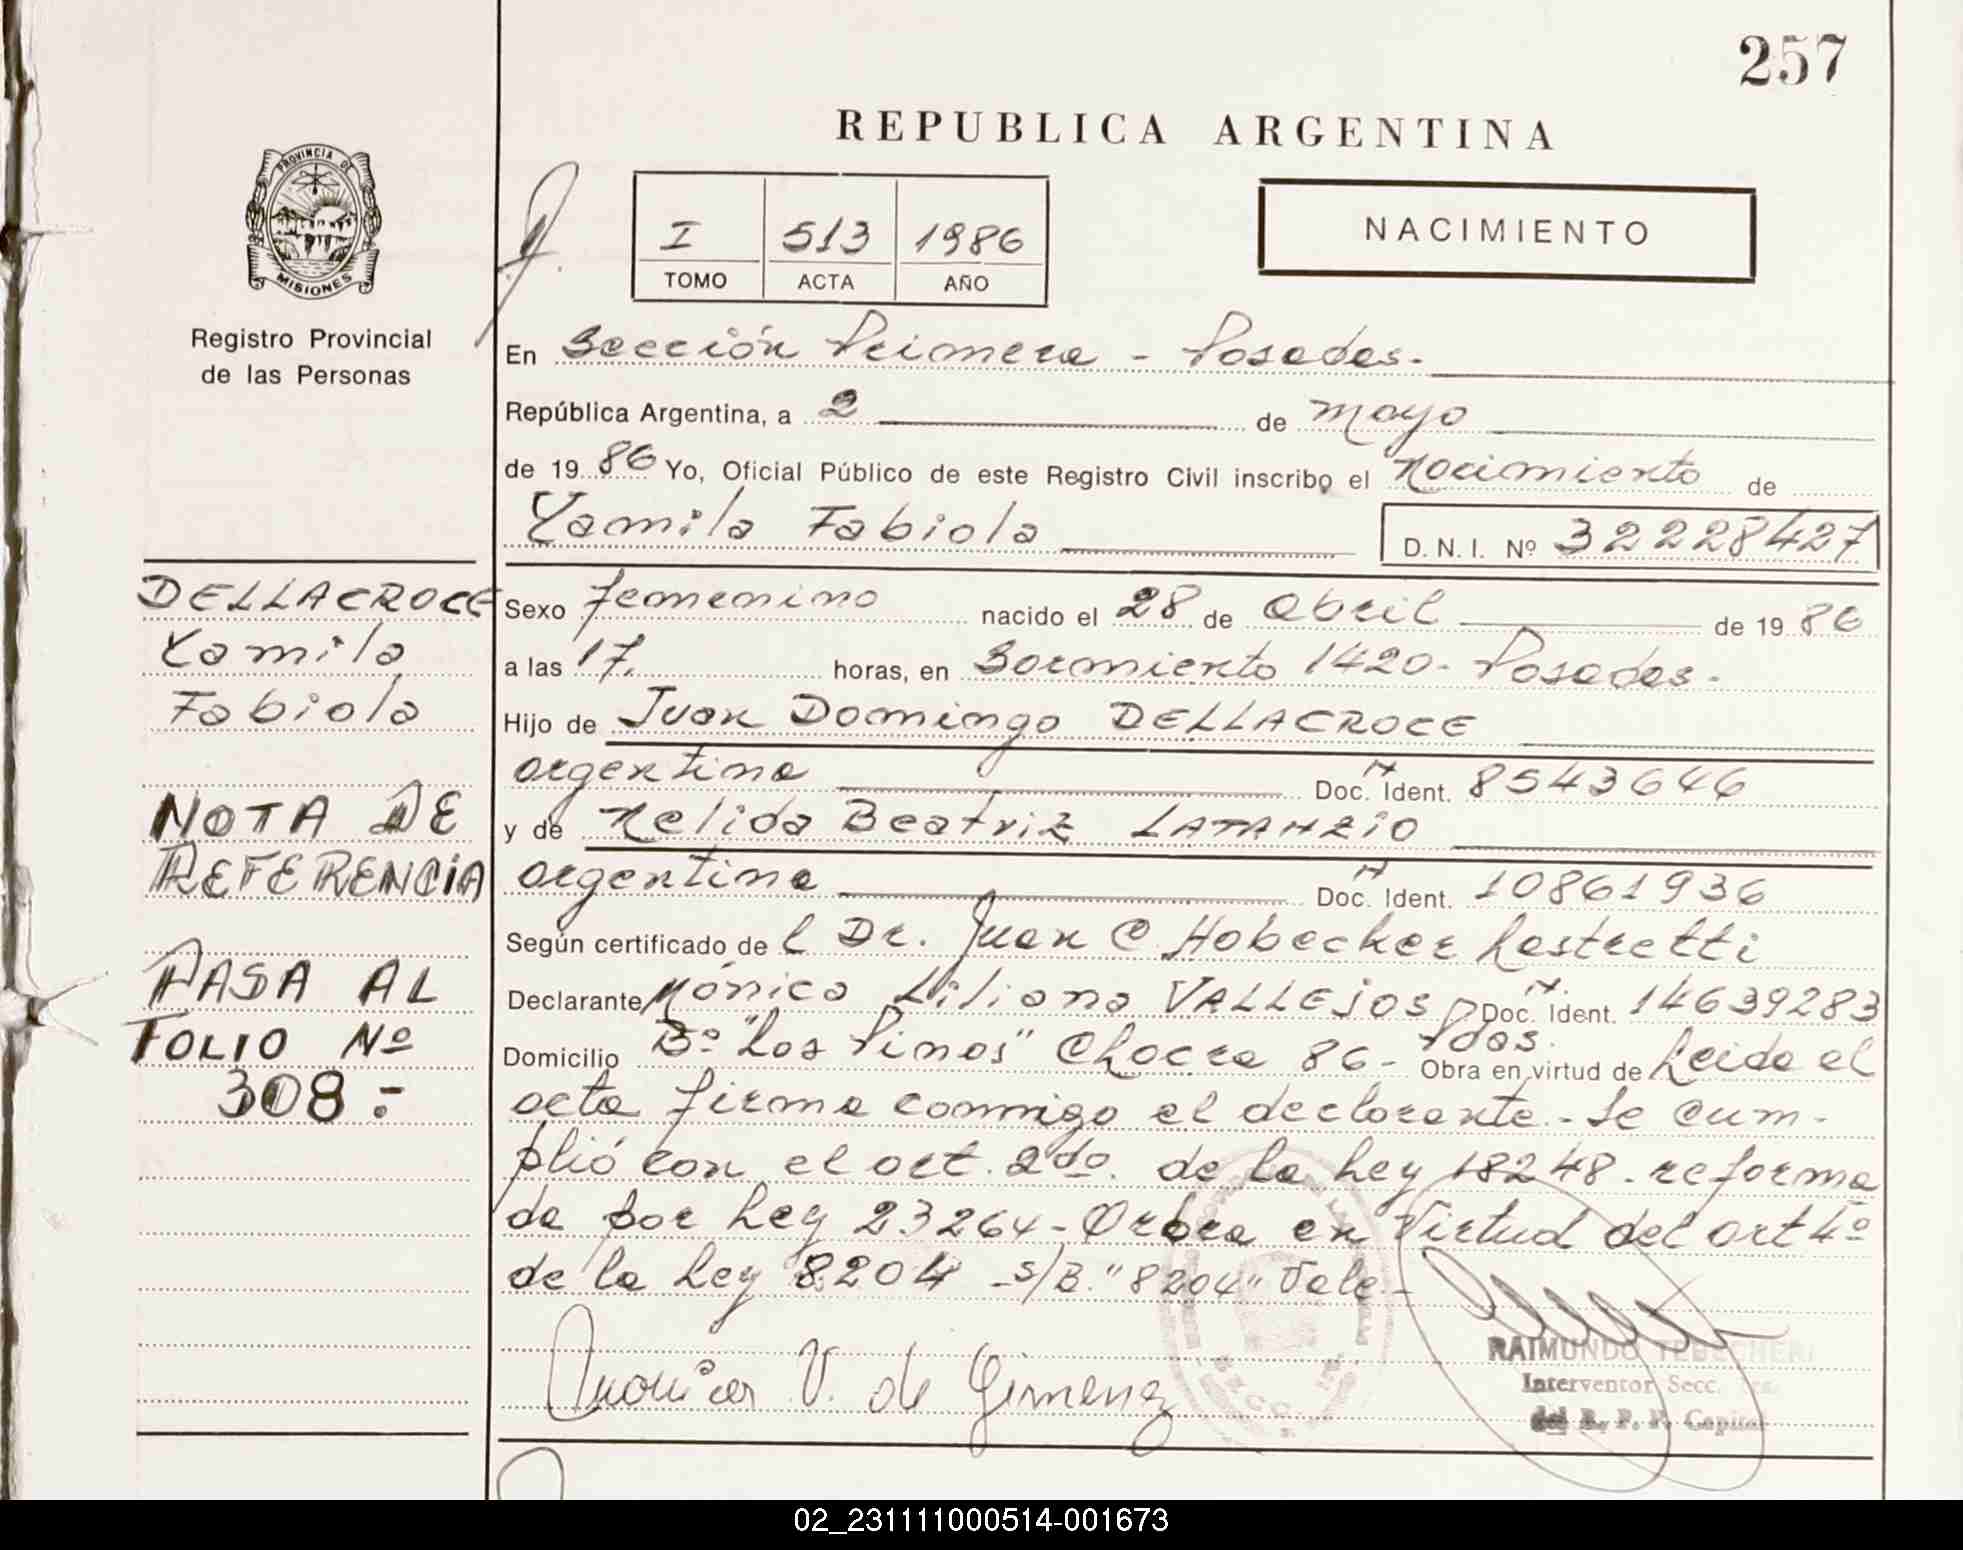 257
REPUBLICA ARGENTINA
PROVINCIA DE
MISIONES
Registro Provincial
de las Personas
I 513 1986
TOMO ACTA AÑO
NACIMIENTO
En Sección Primera - Posadas.
República Argentina, a 2 de mayo
de 1986 Yo, Oficial Público de este Registro Civil inscribo el Nacimiento de
Yamila Fabiola D. N. I. Nº 32228427
DELLACROCE
Yamila
Fabiola
NOTA DE
REFERENCIA
PASA AL
FOLIO Nº
308.-
Sexo femenino nacido el 28 de abril de 1986
a las 17. horas, en Sarmiento 1420- Posadas.
Hijo de Juan Domingo DELLACROCE
argentino Doc. Ident. 8543646
y de Nelida Beatriz LATANZIO
argentina Doc. Ident. 10861936
Según certificado de l Dr. Juan C. Hobecker Lestretti
Declarante Mónica Liliana VALLEJOS Doc. Ident. 14639283
Domicilio Bº "Los Pinos" Chacra 86- Pdas. Obra en virtud de Leida el
acta firma conmigo el declarante.- Se cum-
plió con el art. 2do. de la Ley 18248. reforma
da por Ley 23264- Orbra en Virtud del art 4º
de la Ley 8204 -s/B. "8204" Vale-
Monica V. de Gimenez
RAIMUNDO TEBECHERI
Interventor Secc. 1ra.
del R. P. P. Capital
02_231111000514-001673